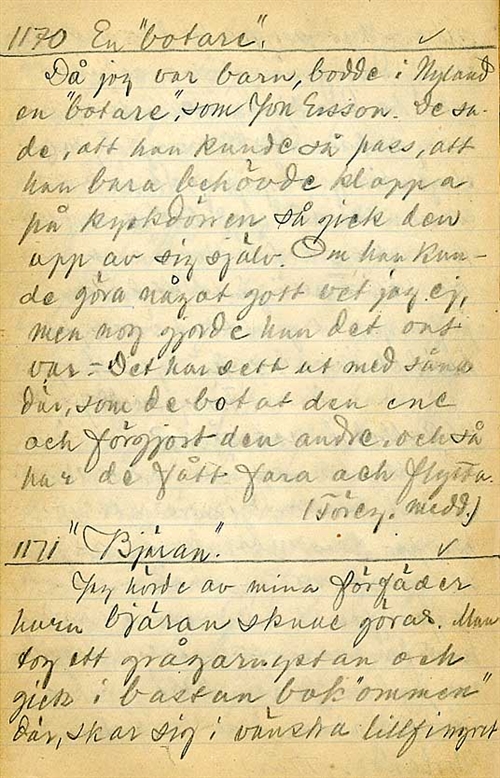 1170 En "botare".
Då jag var barn, bodde i Nyland
en "botare", som Jon Ersson. De sa-
de, att han kunde så pass, att
han bara behövde klappa
på kyrkdörren så gick den
upp av sig själv. Om han kun-
de göra något gott vet jag ej,
men nog gjorde han det ont
var = Det har sett ut med såna
där, som de botat den ene
och förgjort den andre, och så
har de fått fara och flytta.
(Föreg. medd.)
1171 "Bjäran".
Jag hörde av mina förfäder
huru bjäran skulle göras. Man
tog ett grågarnystan och
gick i bastun bak "ommen"
där, skar sig i vänstra lillfingret